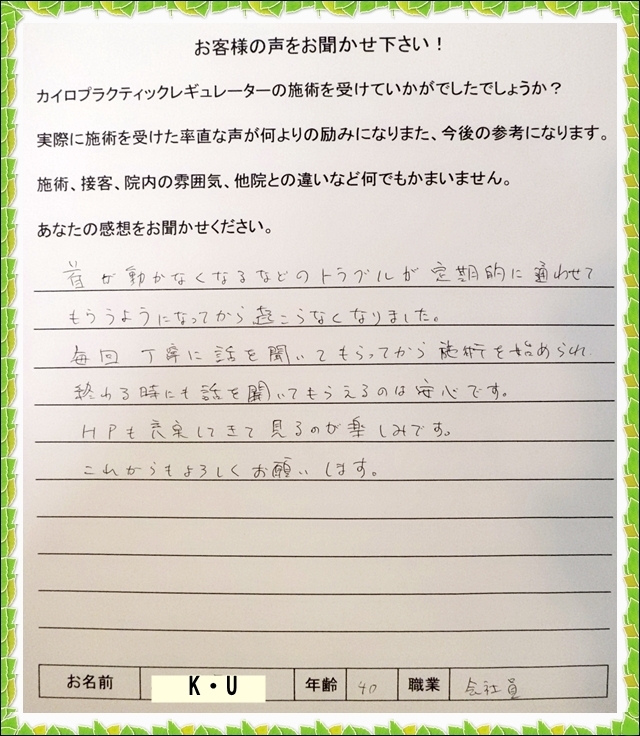 お客様の声をお聞かせ下さい！
カイロプラクティックレギュレーターの施術を受けていかがでしたでしょうか？
実際に施術を受けた率直な声が何よりの励みになりまた、今後の参考になります。
施術、接客、院内の雰囲気、他院との違いなど何でもかまいません。
あなたの感想をお聞かせください。
首が動かなくなるなどのトラブルが定期的に通わせて
もらうようになってから起こらなくなりました。
毎回丁寧に話を聞いてもらってから施術を始められ
終わる時にも話を聞いてもらえるのは安心です。
HPも充実してきて見るのが楽しみです。
これからもよろしくお願いします。
お名前 K・U 年齢 40 職業 会社員